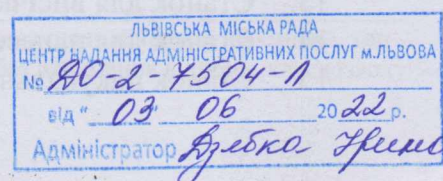 ЛЬВІВСЬКА МІСЬКА РАДА
ЦЕНТР НАДАННЯ АДМІНІСТРАТИВНИХ ПОСЛУГ м.ЛЬВОВА
№ ДО-2-7504-Л
від "03" 06 2022 р.
Адміністратор Дзябко